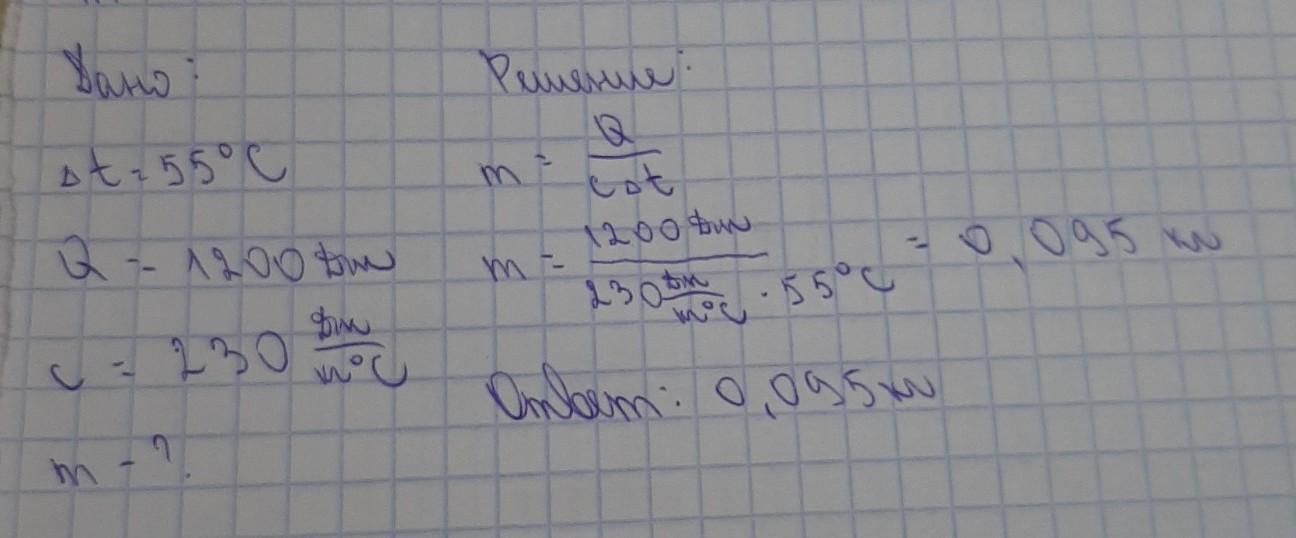 Дано:
Δt = 55°C
Q = 1200 Дж
c = 230 Дж/кг°C
m - ?
Решение:
m = Q/cΔt
m = 1200 Дж/230 Дж/кг°C · 55°C = 0,095 кг
Ответ: 0,095 кг